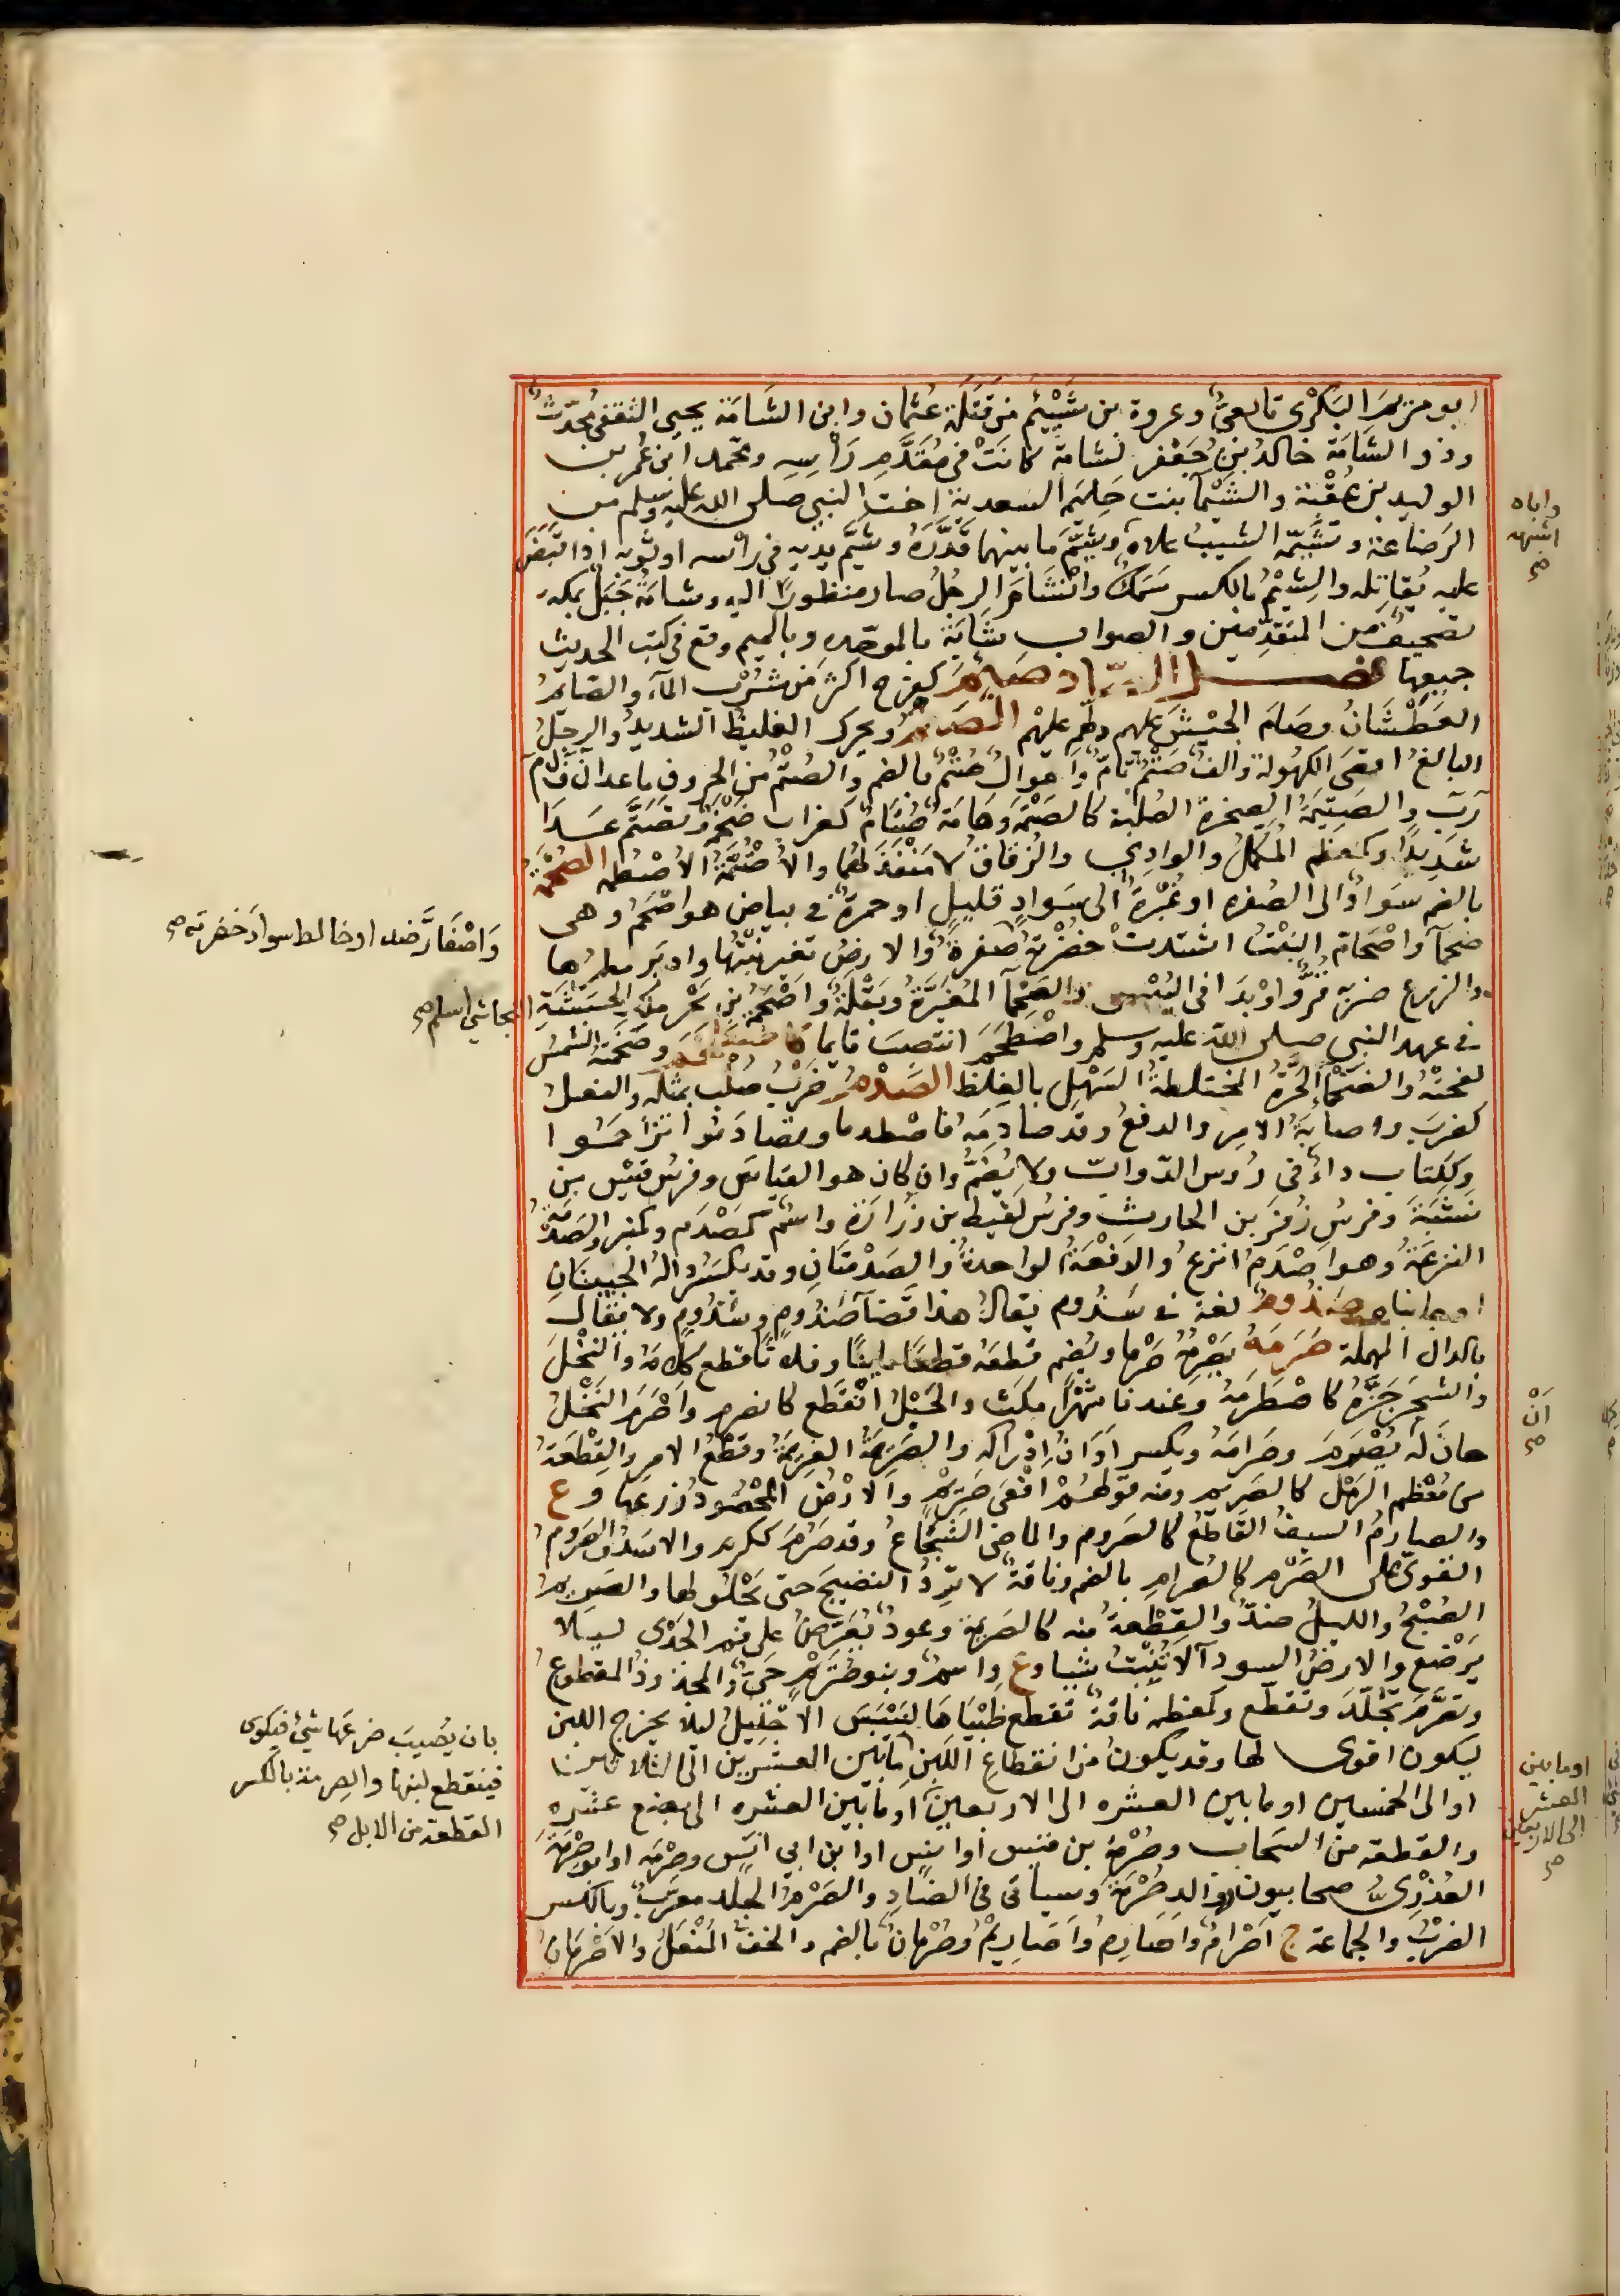 ابو مريم البكرى تابعىٌّ وعروة بن شِيَيْم من قَتَلَة عثمان وابن الشامَة يحيى الثقفى محدّث
وذو الشامَة خالد بن جعفر لشامة كانَتْ فى مُقدَّم رأسِه ومحمد ابن عمر بن
الوليد بن عقبة والشَيْمآ بنت حليمَة السعدية اخت النبى صلى الله عليه وسلم من
الرضاعة وتشيّمه الشيب علاه وشيّم ما بينهما قدّره وشيّم يديه فى رأسه او ثوبه اذا قبض
عليه يقاتله والشِيْم بالكسر سمك وانشام الرجل صار منظورًا اليه وشامة جبل بمكه
تصحيف من المتقدّمين والصواب شابة بالموحّده وبالميم وقع فى كتب الحديث
جميعها فصل الصاد صئم كفرح اكثر من شرب المآء والصائم
العطشان وصام الجيش عليهم وطم عليهم الصتم ويحرك الغليظ الشديد والرجل
البالغ اقصى الكهولة والف صَتْم تامّ واموال صُتْم بالضم والصُتْم من الحروف ما عدا ن ف ل م
ر ب والصتيمة الصخرة الصلبة كالصتمة وهامة صُتام كغراب ضخمة وتصتّم عدا
شديدا وكمعظم المكمّل والوادى والزقاق لا منفذ لهما والاصتمّة الاصطمه الصحمة
بالضم سواد الى الصفره او غبرة الى سواد قليل او حمرة فى بياض هو اصحم وهى
صحمآ واصحامّ النبت اشتدت خضرته صفرة والارض تغير نبتها وادبر مطرها
والزرع ضربه قرّ او بدا فى اليبس والصحمآ المغبرّة وبقلة واصحمة بن بحر ملك الحبشة
فى عهد النبى صلى الله عليه وسلم واصطخم انتصب قايما وصخمته الشمس
لفحته والصخمآ الحرّة المختلطة السهل بالغلظ الصدم ضرب صلب بمثله والفعل
كضرب واصابة الامر والدفع وقد صادمه فاصطدما وتصادموا تزاحموا
وككتاب دآء فى رؤس الدوابّ ولا يضمّ وان كان هو القياس وفرس قيس بن
نشبة وفرس زفر بن الحارث وفرس لقيط بن زرارة واسم كمصدم وكمنبر والصدمة
النزعة وهو اصدم انزع والدفعة الواحدة والصدمتان وقد تكسر داله الجبينان
او جانباهما صذوم لغة فى سذوم يقال هذا قضآ صذوم وسذوم ولا يقال
بالدال المهملة صرمه يصرمه صَرما ويضم قطعه قطعا باينا وفلانًا قطع كلامه والنخل
والشجر جزّه كاصطرمه وعندنا شهرًا مكث والحبل انقطع كانصرم واصرم النخل
حان له يصرم وصرامه ويكسر اوان ادراكه والصريمة العزيمة وقطع الامر والقطعة
من معظم الرمل كالصريم ومنه قولهم افعى صريم والارض المحصود زرعها و ع
والصارم السيف القاطع كالصروم والماضى الشجاع وقد صرم ككرم والاسد والصروم
القوىّ على الصرم كالصرام بالضم وناقة لا ترد النضيح حتى يخلو لها والصريم
الصبح والليل ضدّ والقطعة منه كالصريمة وعود يعرّض على فم الجدى ليلا
يرضع والارض السودآ لا تنبت شيا و ع واسم وبنو صريم حىّ والمجذوذ المقطوع
وتصرّم تجلّد وتقطّع وكمعظمه ناقة تقطع طُبْياها لييبس الاحليل ليلا يخرج اللبن
ليكون اقوى لها وقد يكون من انقطاع اللبن ما بين العشرين الى الثلاثين
او الى الخمسين او ما بين العشره الى الاربعين او ما بين العشره الى بضع عشره
والقطعة من السحاب وصِرْمة بن قيس او ابن انس او ابن ابى انس وصرمه او ابو صرمة
العذرىّ صحابيون ووالد ضرمة وسياتى فى الضاد والصَرْم الجلد معرّب وبالكسر
الضرب والجماعة ج اصرام واصارم واصاريم وصُرْمان بالضم والخف المنعل والاصرمان
واباه
اشبهه
صح
واصْفارَّ ضد او خالط سواد خضرته صح
النجاشى اسلم صح
انْ
صح
بان يُصيب ضرعها شئ فيكوى
فينقطع لبنها والصرمة بالكسر
القطعة من الابل صح
او ما بين
العشر
الى الاربعين
صح